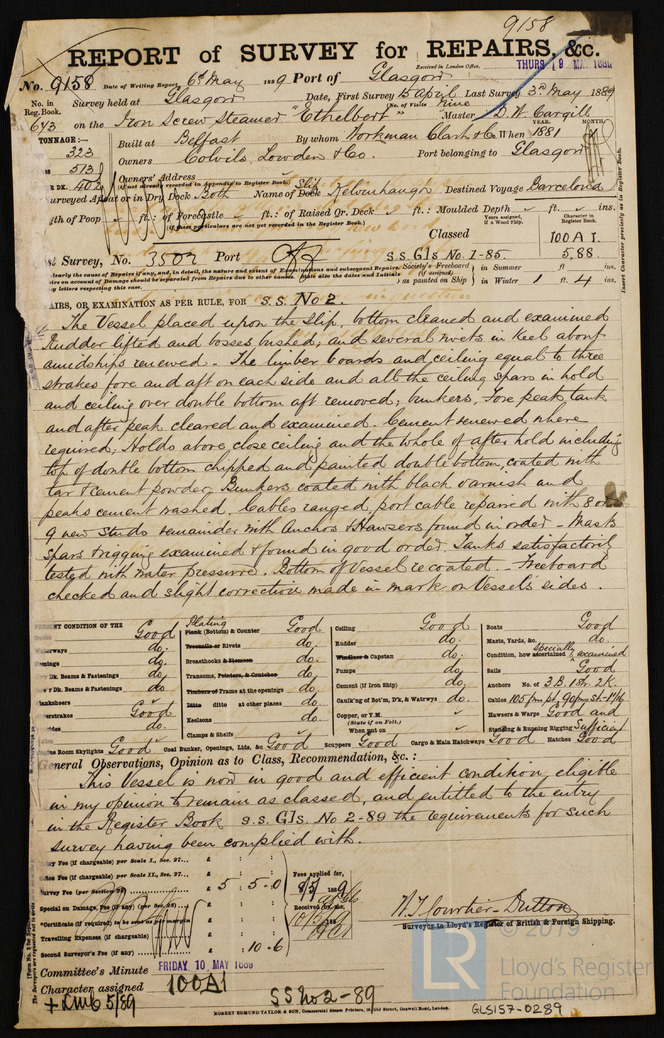 9158
REPORT of SURVEY for REPAIRS, &c.
No. 9158 Date of Writing Report 6th May 1889 Port of Glasgow Received in London Office. THURS 9 MAY 1889
No. in Reg. Book. Survey held at Glasgow Date, First Survey 15 April Last Survey 3rd May 1889
No. of Visits nine
643 on the Iron Screw Steamer "Ethelbert" Master D. W. Cargill
TONNAGE:— Built at Belfast By whom Workman Clark & Co. When 1881 YEAR. MONTH.
323
513 Owners Colvils, Lowden & Co. Port belonging to Glasgow
Owners' Address
402 (if not already recorded in Appendix to Register Book.)
Surveyed Afloat or in Dry Dock Both Name of Dock Slip Kelvinhaugh Destined Voyage Barcelona
gth of Poop ft.: of Forecastle ft.: of Raised Qr. Deck ft.: Moulded Depth ft. ins.
(if these particulars are not yet recorded in the Register Book.)
Classed 100A1.
st Survey, No. 3502 Port S.S. Gls No. 1-85. 5.88.
Society's Freeboard (if assigned) as painted on Ship in Summer ft. ins.
in Winter 1 ft. 4 ins.
AIRS, OR EXAMINATION AS PER RULE, FOR S.S. No 2.
The Vessel placed upon the Slip, bottom cleaned and examined
Rudder lifted and bosses bushed, and several rivets in Keel about
amidships renewed. The limber boards and ceiling equal to three
strakes fore and aft on each side and all the ceiling spars in hold
and ceiling over double bottom aft removed; bunkers, Fore peak tank
and after peak cleared and examined. Cement renewed where
required, Holds above close ceiling and the whole of after hold including
top of double bottom chipped and painted double bottom, coated with
tar & cement powder, Bunkers coated with black varnish and
peaks cement washed. Cables ranged, port cable repaired with 8 or
9 new studs remainder with Anchors & Hawsers found in order. Masts
spars & rigging examined & found in good order. Tanks satisfactorily
tested with water pressure. Bottom of Vessel recoated. Freeboard
checked and slight correction made in mark on Vessel's sides.
PRESENT CONDITION OF THE
Good
Waterways do.
do.
Dk. Beams & Fastenings do.
r Dk. Beams & Fastenings do.
Planksheers
Good
do.
Engine Room Skylights Good
Plating
Plank (Bottom) & Counter Good
Treenails or Rivets do.
Breasthooks & Stemson do.
Transoms, Pointers, & Crutches do.
Timbers of Frame at the openings do.
Ditto ditto at other places do.
Keelsons do.
Clamps & Shelfs
Coal Bunker, Openings, Lids, &c. Good
Ceiling Good
Rudder do.
Windlass & Capstan do.
Pumps do.
Cement (if Iron Ship) do.
Caulk'ng of Bot'm, D'k, & Watrwys do.
Copper, or Y.M. (State if on Felt.)
When put on
Scuppers Good Cargo & Main Hatchways Good
Boats Good
Masts, Yards, &c. do.
Condition, how ascertained specially examined
Sails Good
Anchors No. of 3 B. 1 St. 2 K.
Hawsers & Warps Good and
Standing & Running Rigging Sufficient
Hatches Good
General Observations, Opinion as to Class, Recommendation, &c.:
This Vessel is now in good and efficient condition, eligible
in my opinion to remain as classed, and entitled to the entry
in the Register Book S.S. Gls. No 2-89 the requirements for such
survey having been complied with.
Fee (if chargeable) per Scale I., Sec. 27... £ : :
Fee (if chargeable) per Scale II., Sec. 27... £ : :
Survey Fee (per Section 28) £ 5 . 5 . 0
Fees applied for, 8/5 1889
Special or Damage Fee (if any) (per Sec. 28) £ : :
Received by me,
Certificate (if required)
Travelling Expenses (if chargeable) £ : :
Second Surveyor's Fee (if any) £ : 10 . 6
W. J. Courtier-Dutton
Surveyor to Lloyd's Register of British & Foreign Shipping.
Committee's Minute FRIDAY, 10 MAY 1889
Character assigned 100A1
+LMC 5/89 SS No 2-89
ROBERT EDMUND TAYLOR & SON, Commercial Steam Printers, 19, Old Street, Goswell Road, London.
© 2019
LR
Lloyd's Register
Foundation
GLS157-0289